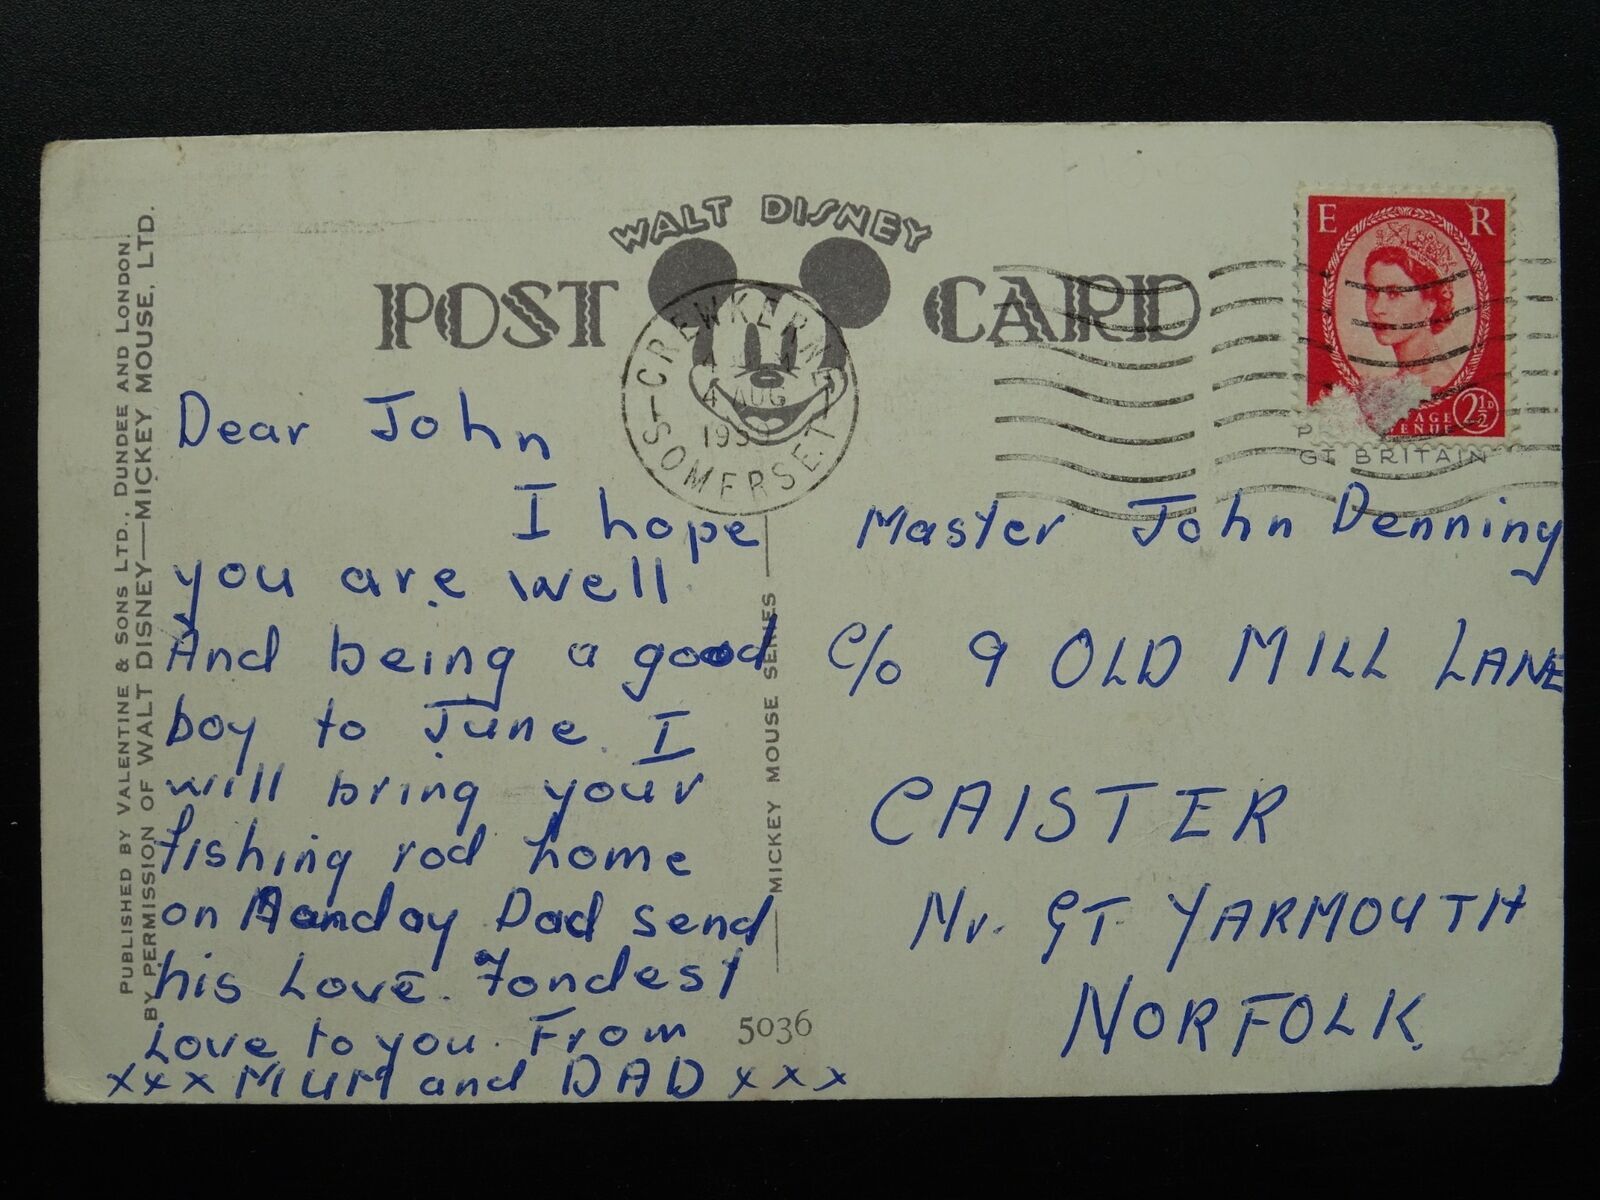 WALT DISNEY
POST CARD
CREWKERNE
4 AUG
SOMERSET
E R
2½D
GT BRITAIN
PUBLISHED BY VALENTINE & SONS LTD., DUNDEE AND LONDON.
BY PERMISSION OF WALT DISNEY—MICKEY MOUSE, LTD.
Dear John
I hope
you are well
And being a good
boy to June. I
will bring your
fishing rod home
on Monday Dad send
his Love. Fondest
Love to you. From
xxx MUM and DAD xxx
MICKEY MOUSE SERIES
5036
Master John Denning
C/o 9 OLD MILL LANE
CAISTER
Nr. GT. YARMOUTH
NORFOLK.